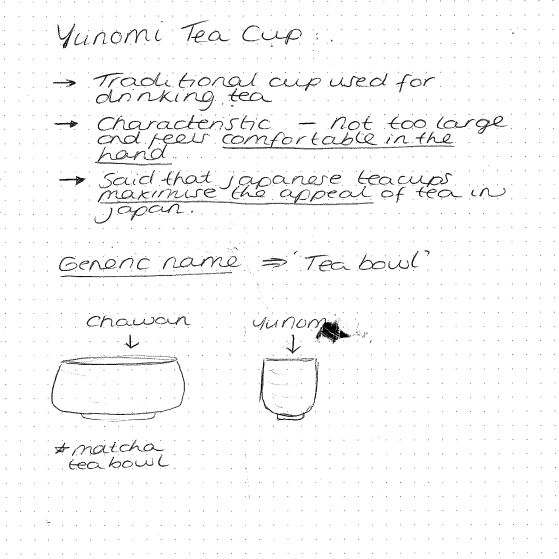 Yunomi Tea Cup :
→ Traditional cup used for
drinking tea
→ Characteristic – not too large
and feels comfortable in the
hand
→ Said that japanese teacups
maximise the appeal of tea in
japan.
Generic name ⇒ 'Tea bowl'
Chawan
Yunomi
* matcha
tea bowl